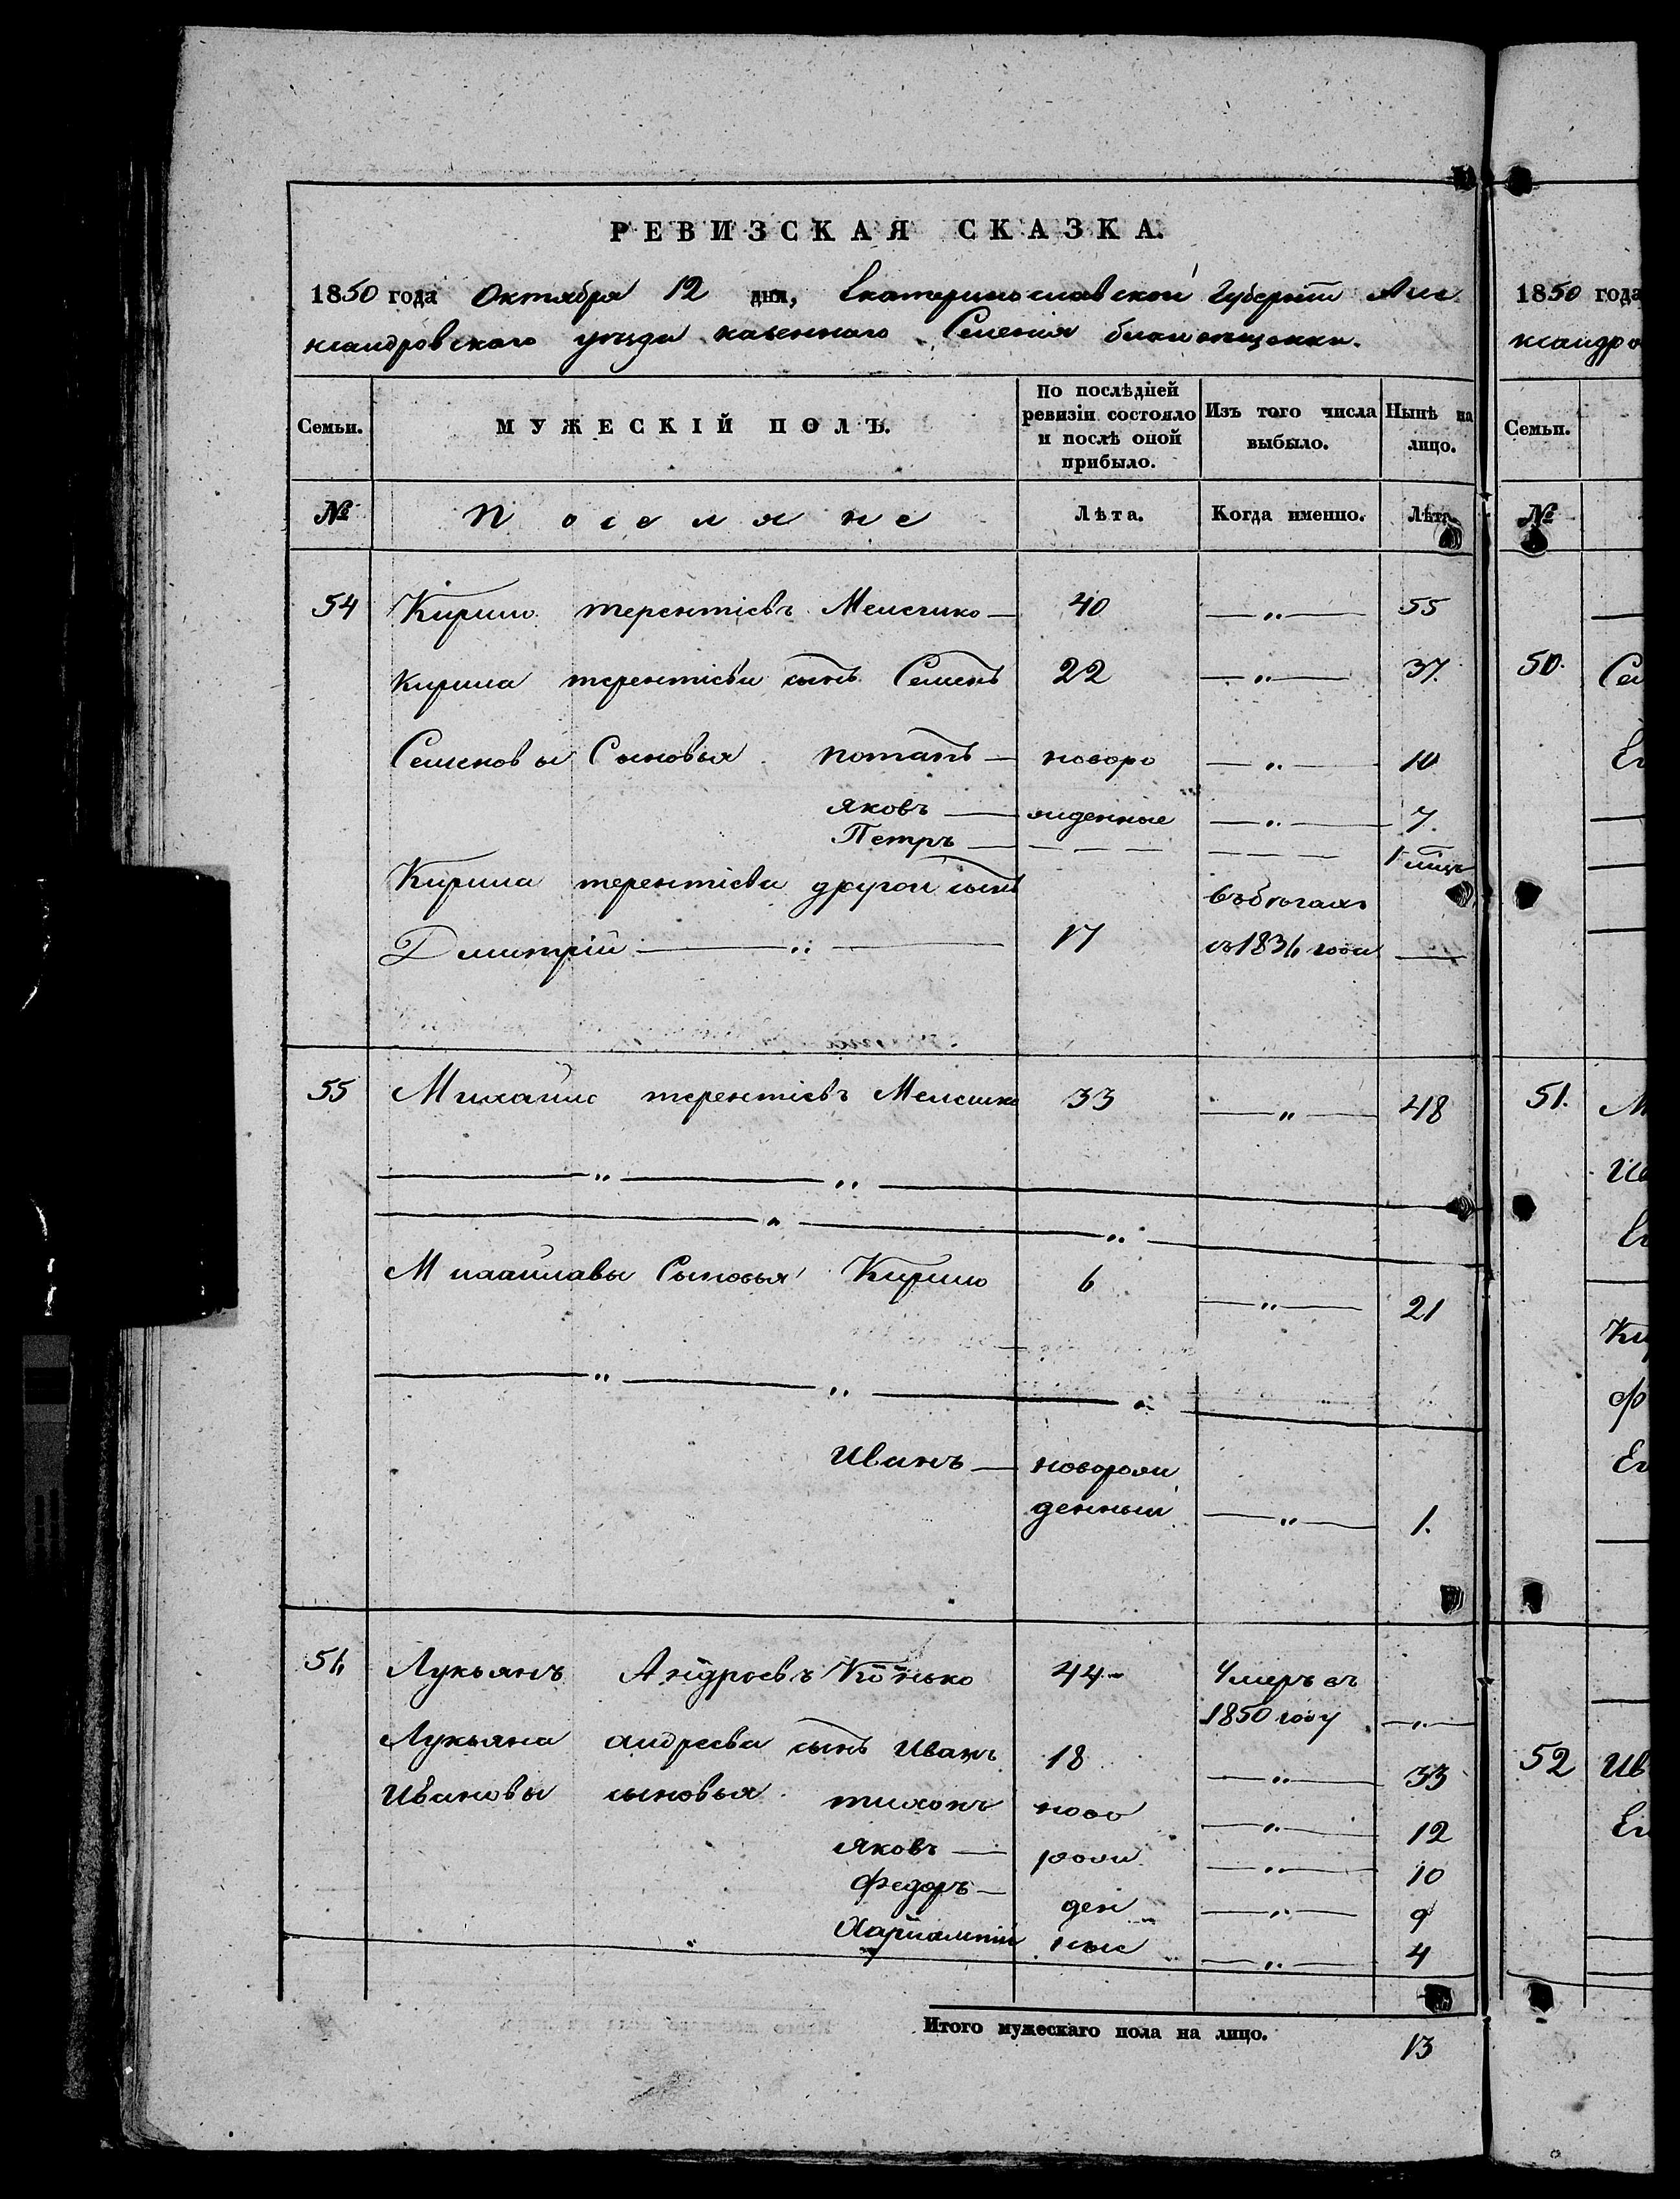 РЕВИЗСКАЯ СКАЗКА.
1850 года Октября 12 дня, Екатеринославской Губернии Але
ксандровского уезда казенного Селения
Семьи. МУЖЕСКІЙ ПОЛЪ. По послѣдней ревизіи состояло и послѣ оной прибыло. Изъ того числа выбыло. Нынѣ на лицо.
№ Поселяне Лѣта. Когда именно. Лѣта.
54 Кирило терентіевъ Мелешко — 40 — „ — 55
Кирила терентіева сынъ Семенъ 22 — „ — 37.
Семеновы Сыновья потапъ — новоро — „ — 10
яковъ — жденные — „ — 7.
Петръ — — — — — — — 1 мцъ
Кирила терентіева другой сынъ въ бѣгахъ
Дмитрій — „ — 17 съ 1836 года —
55 Михайло терентіевъ Мелешко 33 — „ — 48
— „ — „ —
— „ — „ —
Михайлавы Сыновья Кирило 6 — „ — 21
— „ — „ — „ —
Иванъ — новорож
денный — „ — 1.
56 Лукьянъ Андреевъ Конько 44 — Умеръ въ
1850 году — „ —
Лукьяна андреева сынъ Иванъ 18 — „ — 33
Ивановы сыновья тихонъ ново — „ — 12
яковъ — рож — „ — 10
Федоръ — ден — „ — 9
Харлампій ные — „ — 4
Итого мужескаго пола на лицо. 13
1850 года
ксандро
Семьи.
№
50.
51.
52 Ив